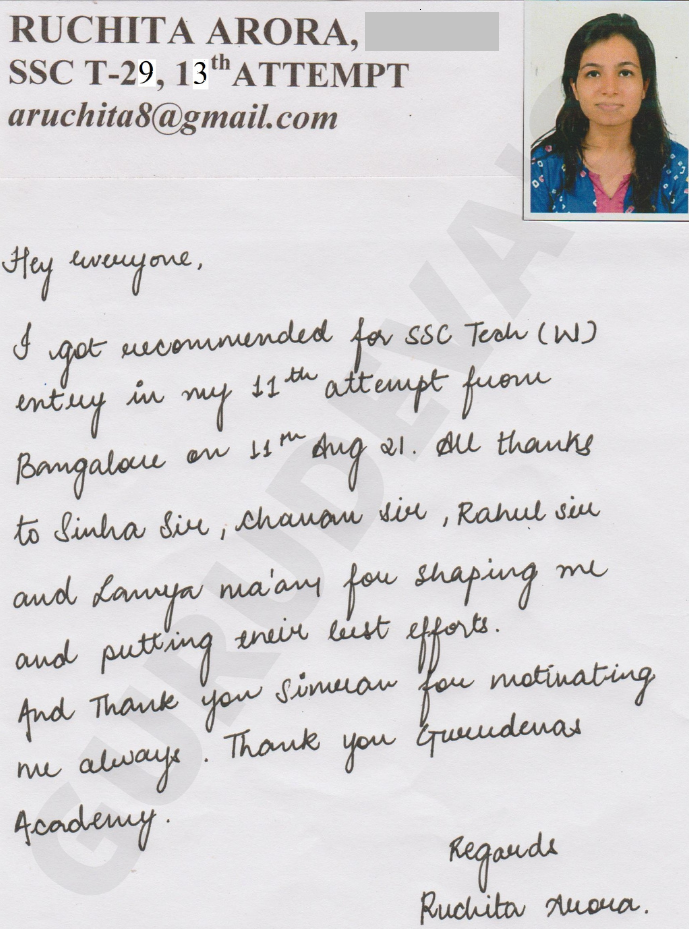 RUCHITA ARORA,
SSC T-29, 13th ATTEMPT
aruchita8@gmail.com
Hey everyone,
I got recommended for SSC Tech (W)
entry in my 11th attempt from
Bangalore on 11th Aug 21. All thanks
to Sinha Sir, Charan sir, Rahul sir
and Lamya ma'am for shaping me
and putting their best efforts.
And Thank you Simran for motivating
me always. Thank you Gurudevas
Academy.
Regards
Ruchita Arora.
GURUDEVAS